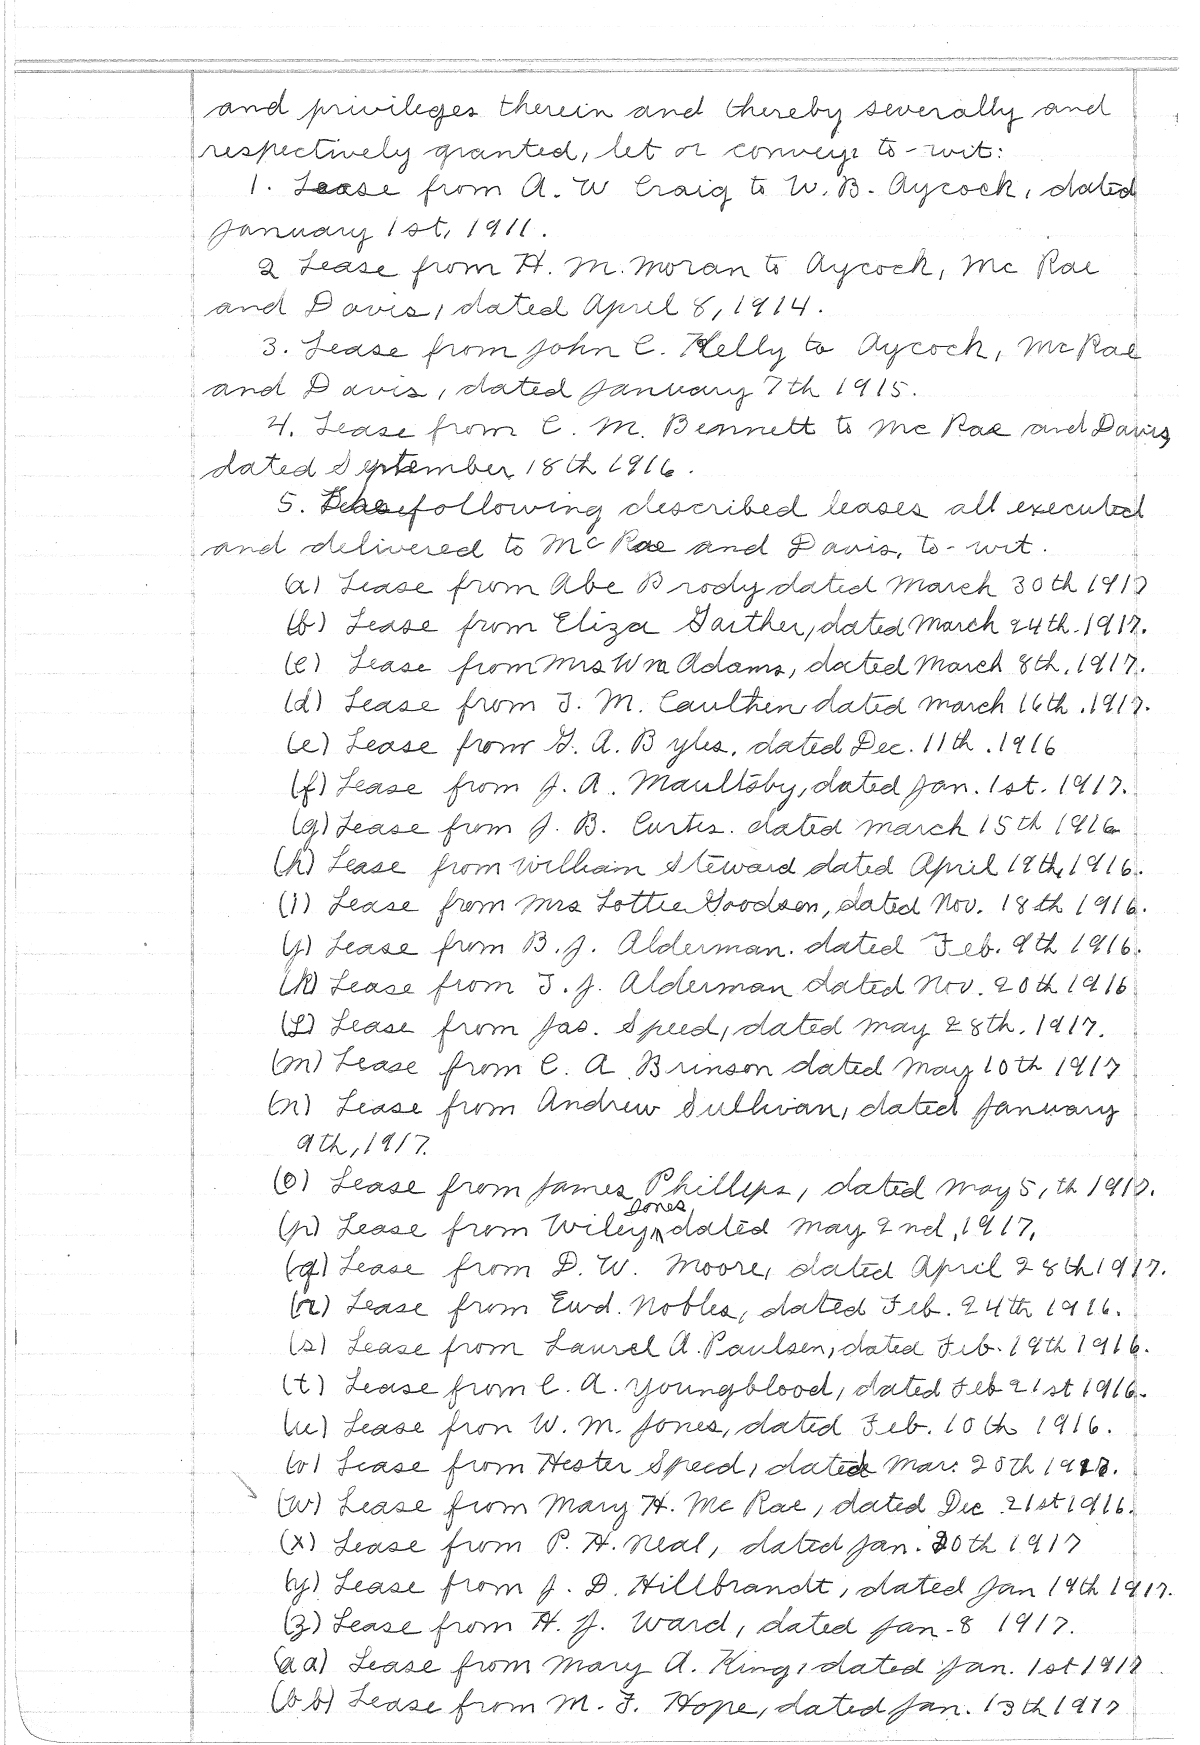 and privileges therein and thereby severally and
respectively granted, let or conveye to-wit:
1. Lease from A. W Craig to W. B. Aycock, dated
January 1st, 1911.
2 Lease from H. M. Moran to Aycock, Mc Rae
and Davis, dated April 8, 1914.
3. Lease from John C. Kelly to Aycock, Mc Rae
and Davis, dated January 7th 1915.
4. Lease from C. M. Bennett to Mc Rae and Davis
dated September 18th 1916.
5. The following described leases all executed
and delivered to Mc Rae and Davis, to-wit.
(a) Lease from Abe Brody dated March 30th 1917
(b) Lease from Eliza Gaither, dated March 24th. 1917.
(c) Lease from Mrs Wm Adams, dated March 8th, 1917.
(d) Lease from J. M. Caulthen dated March 16th. 1917.
(e) Lease from G. A. Byles, dated Dec. 11th. 1916
(f) Lease from J. A. Maultsby, dated Jan. 1st. 1917.
(g) Lease from J. B. Curtis. dated March 15th 1916
(h) Lease from William Steward dated April 19th, 1916.
(i) Lease from Mrs Lottie Goodson, dated Nov. 18th 1916.
(j) Lease from B. J. Alderman. dated Feb. 9th 1916.
(k) Lease from T. J. Alderman dated Nov. 20th 1916
(l) Lease from Jas. Speed, dated May 28th. 1917.
(m) Lease from C. A. Brinson dated May 10th 1917
(n) Lease from Andrew Sullivan, dated January
9th, 1917.
(o) Lease from James Phillips, dated May 5, th 1917.
(p) Lease from Wiley Jones dated May 2nd, 1917.
(q) Lease from D. W. Moore, dated April 28th 1917.
(r) Lease from Ewd. Nobles, dated Feb. 24th 1916.
(s) Lease from Laurel A. Paulsen, dated Feb. 19th 1916.
(t) Lease from C. A. Youngblood, dated Feb 21st 1916.
(u) Lease fron W. M. Jones, dated Feb. 10th 1916.
(v) Lease from Hester Speed, dated Mar. 20th
(w) Lease from Mary H. Mc Rae, dated Dec. 21st 1916.
(x) Lease from P. H. Neal, dated Jan. 20th 1917
(y) Lease from J. D. Hillbrandt, dated Jan 19th 1917.
(z) Lease from H. J. Ward, dated Jan-8 1917.
(aa) Lease from Mary A. King, dated Jan. 1st 1917
(bb) Lease from M. F. Hope, dated Jan. 13th 1917